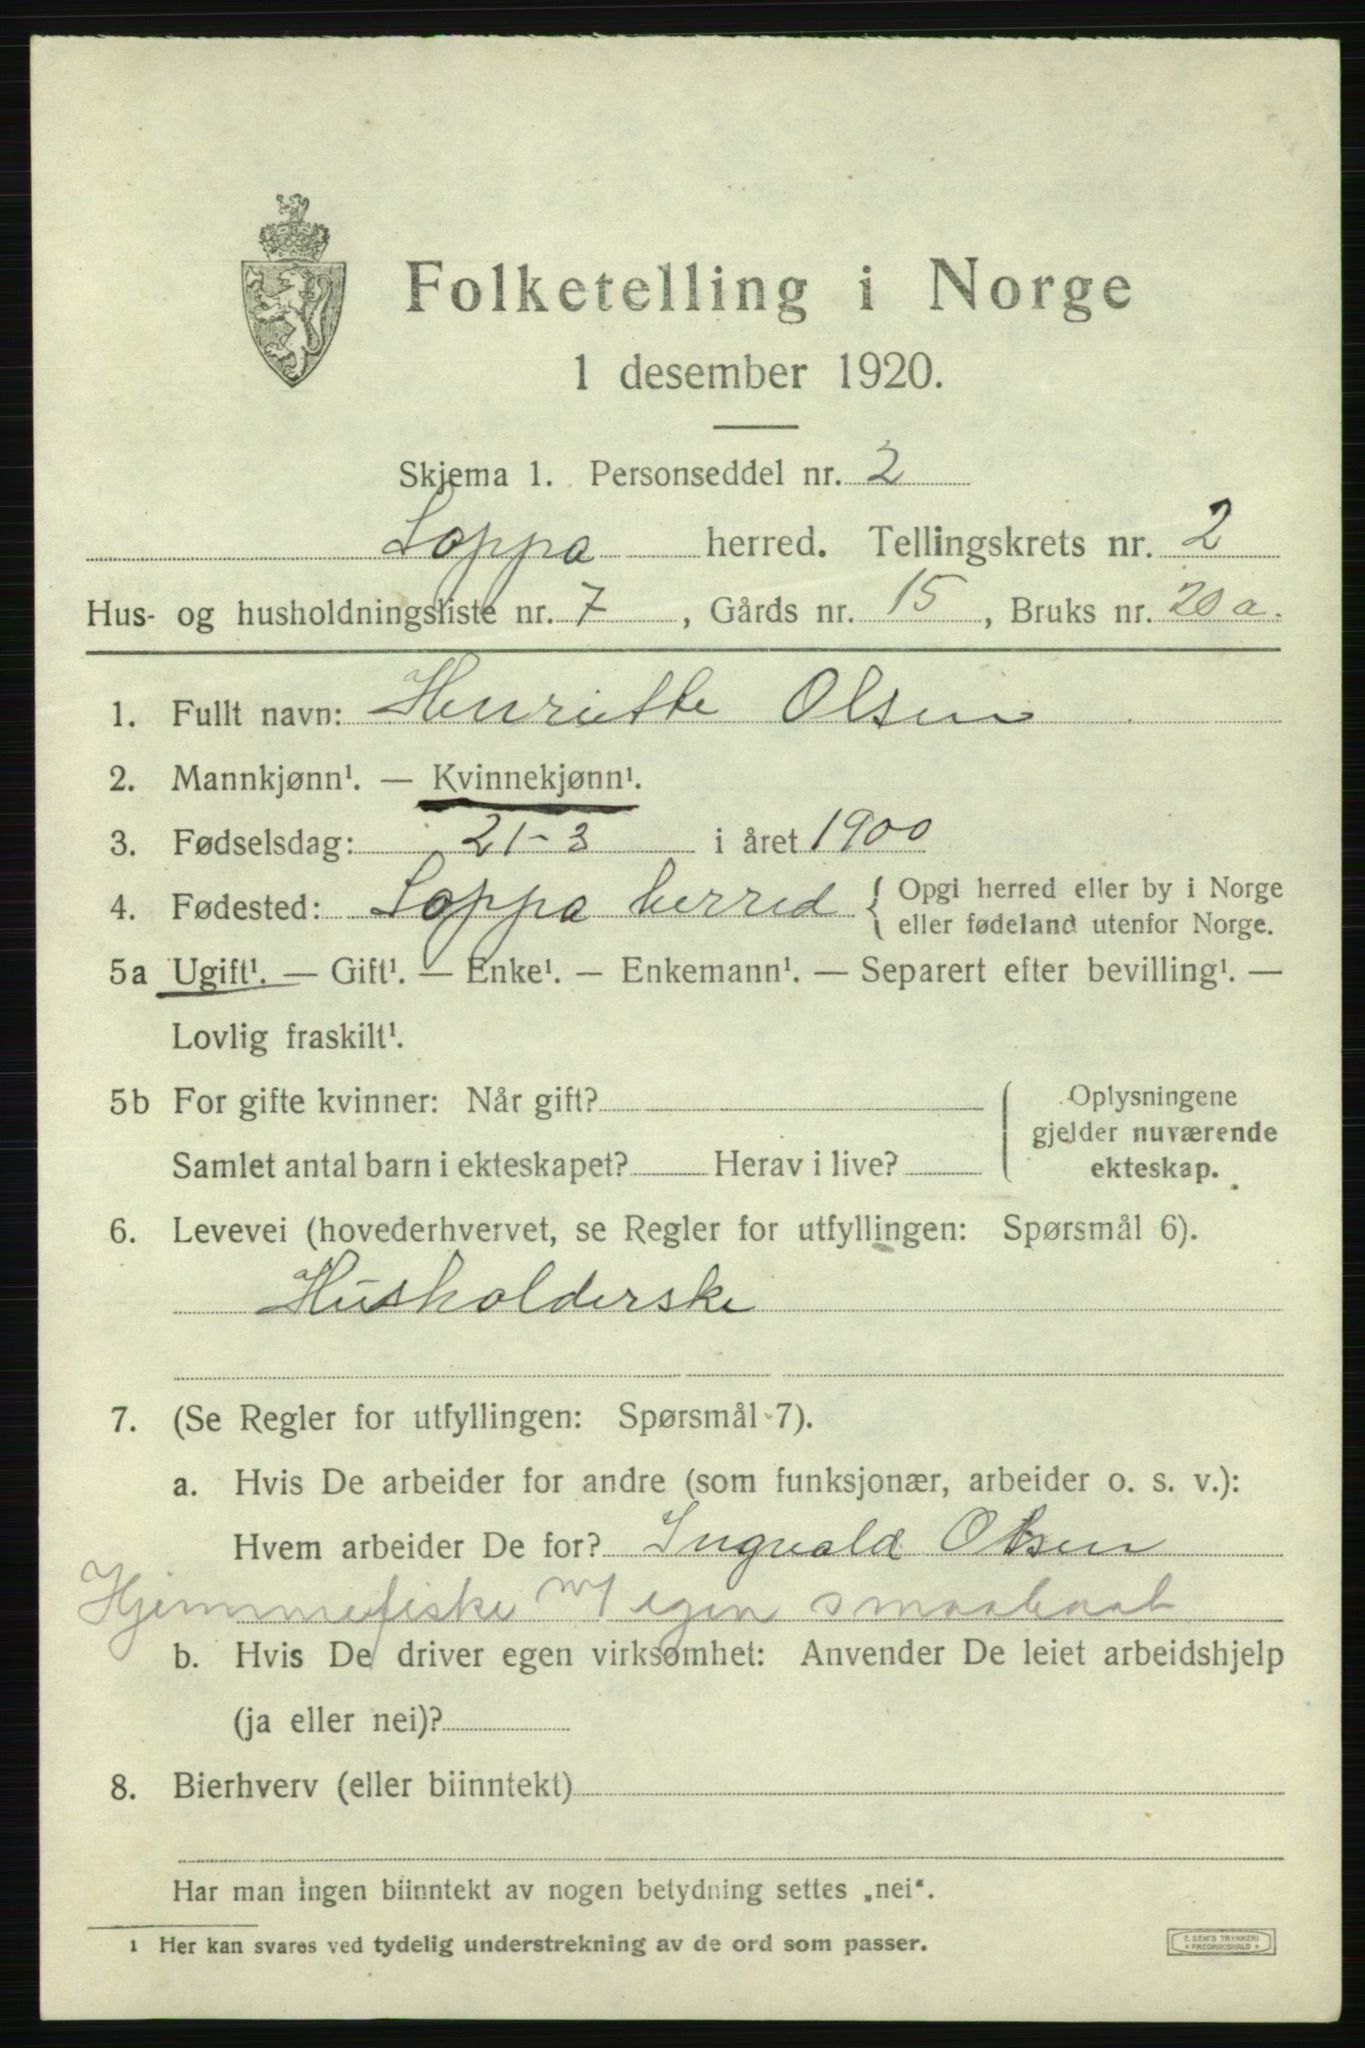 Folketelling i Norge
1 desember 1920.
Skjema 1. Personseddel nr. 2
Loppa herred. Tellingskrets nr. 2
Hus- og husholdningsliste nr. 7, Gårds nr. 15, Bruks nr. 20 a.
1. Fullt navn: Henriette Olsen
2. Mannkjønn¹. — Kvinnekjønn¹.
3. Fødselsdag: 21-3 i året 1900
4. Fødested: Loppa herred { Opgi herred eller by i Norge
eller fødeland utenfor Norge.
5a Ugift¹. — Gift¹. — Enke¹. — Enkemann¹. — Separert efter bevilling¹. —
Lovlig fraskilt¹.
5b For gifte kvinner: Når gift?
Samlet antal barn i ekteskapet? Herav i live?
Oplysningene
gjelder nuværende
ekteskap.
6. Levevei (hovederhvervet, se Regler for utfyllingen: Spørsmål 6).
Husholderske
7. (Se Regler for utfyllingen: Spørsmål 7).
a. Hvis De arbeider for andre (som funksjonær, arbeider o. s. v.):
Hvem arbeider De for? Ingvald Olsen
Hjemmefiske m/ egen smaabaat
b. Hvis De driver egen virksomhet: Anvender De leiet arbeidshjelp
(ja eller nei)?
8. Bierhverv (eller biinntekt)
Har man ingen biinntekt av nogen betydning settes „nei“.
1 Her kan svares ved tydelig understrekning av de ord som passer.
E. SEM'S TRYKKERI
* FREDRIKSHALD *